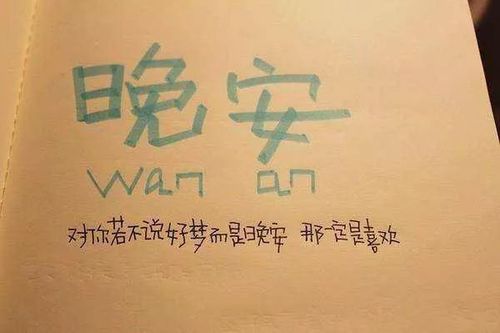 晚安
wan an
对你若不说好梦而是晚安 那一定是喜欢